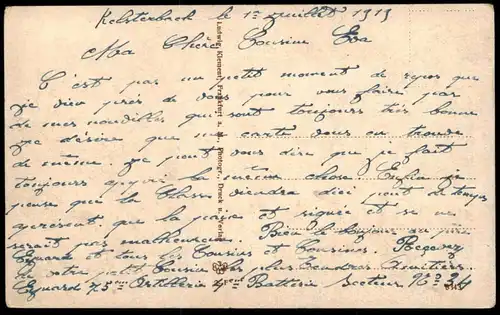 Kelsterbach le 1er juillet 1919
Ma Chère Cousine Eva
C'est pas un petit moment de repos que
je viens près de vous pour vous faire par
de mes nouvelles qui sont toujours très bonne
je désire que ma carte vous en trouve
de même. je peut vous dire que je fait
toujours la même chose. Enfin je
pense que la Classe viendra dici peut de temps
apresent, que la paix et signée et se ne
serait pas malheureux. Bien le bonjour au père
et tous les Cousins et Cousines. Reçevez
de votre petit Cousin les plus Tendres Amitiés
75 Artillerie Batterie Secteur N° 24
Ludwig Klement, Frankfurt a. M. Photogr., Druck u. Verlag